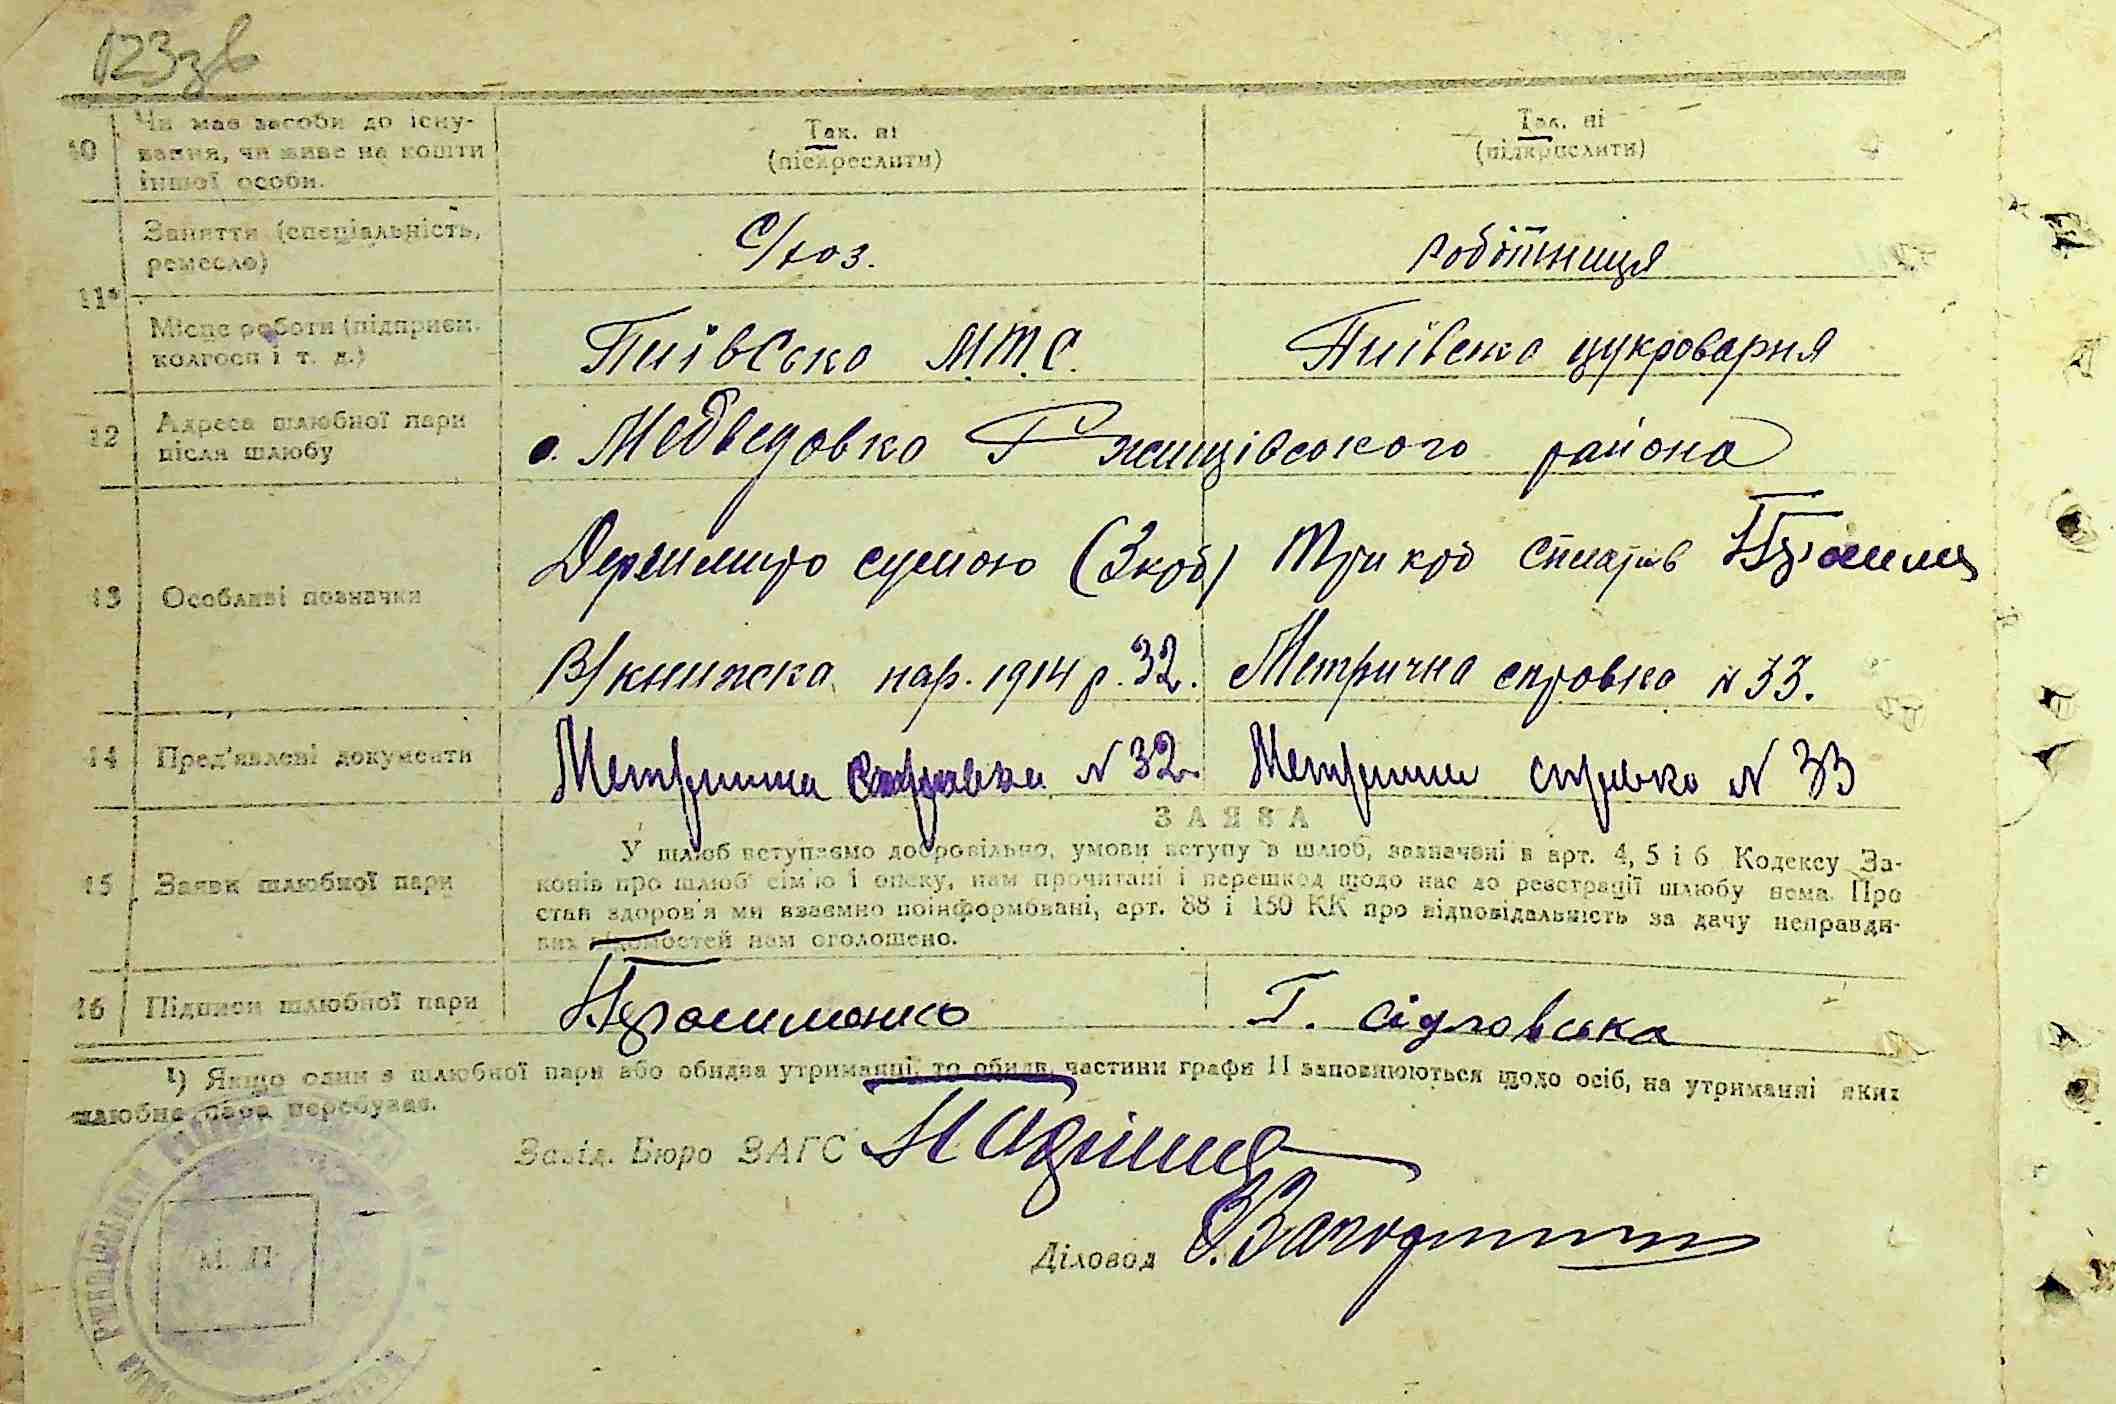 123зв
10 Чи має засоби до існу-
вання, чи живе на кошти
іншої особи.
Так. ні
(підкреслити)
Так. ні
(підкрислити)
11*
Заняття (спеціальність,
ремесло)
С/гоз.
робітниця
Місце роботи (підприєм.
колгосп і т. д.)
Пиївська М.Т.С.
Пиївська цукроварня
12 Адреса шлюбної пари
після шлюбу
с. Медведовка Ржищівського района
13 Особливі позначки
Держмито сумою (3 крб) Три крб сплатив
В/книжка нар. 1914 р. 32. Метрична справка № 33.
14 Пред'явлені документи
Метрична справка № 32. Метрична справка № 33
15 Заяви шлюбної пари
ЗАЯВА
У шлюб вступаємо добровільно, умови вступу в шлюб, зазначені в арт. 4, 5 і 6 Кодексу За-
конів про шлюб сім'ю і опеку, нам прочитані і перешкод щодо нас до реєстрації шлюбу нема. Про
стан здоров'я ми взаємно поінформовані, арт. 88 і 150 КК про відповідальність за дачу неправди-
вих відомостей нам оголошено.
16 Підписи шлюбної пари
Герасименко
Г. Сідловська
¹) Якщо один з шлюбної пари або обидва утриманці, то обидв. частини графи 11 заповнюються щодо осіб, на утриманні яких
шлюбна пара перебуває.
Завід. Бюро ЗАГС
Діловод
М. П.